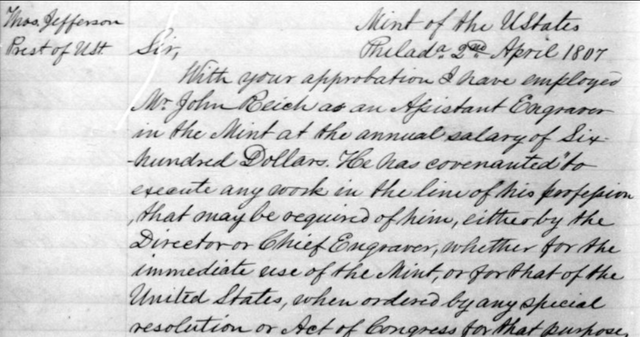 Thos. Jefferson
Prest of USt.
Mint of the UStates
Philada. 2nd April 1807
Sir,
With your approbation I have employed
Mr. John Reich as an Assistant Engraver
in the Mint at the annual salary of Six
hundred Dollars. He has covenanted to
execute any work in the line of his profession
that may be required of him, either by the
Director or Chief Engraver, whether for the
immediate use of the Mint, or for that of the
United States, when ordered by any special
resolution or Act of Congress for that purpose,